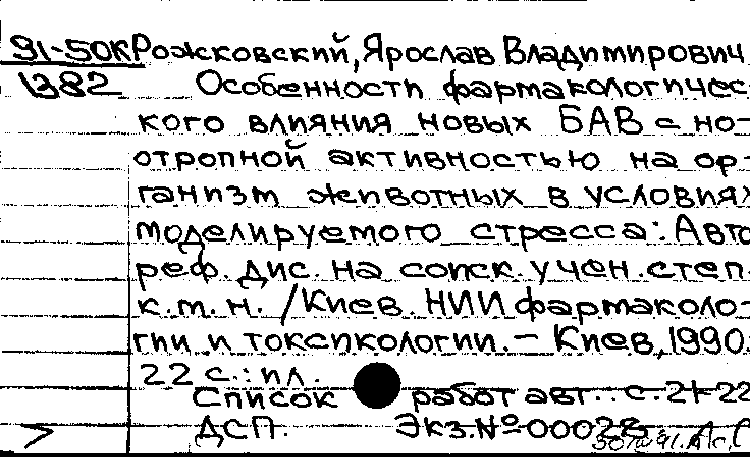 91-50К Рожковский, Ярослав Владимирович
1382 Особенности фармакологичес-
кого влияния новых БАВ с но-
отропной активностью на ор-
ганизм животных в условиях
моделируемого стресса: Авто
реф. дис. на соиск. учен. степ.
к.м.н. / Киев. НИИ фармаколо-
гии и токсикологии. – Киев, 1990.
22 с.: ил.
Список работ авт.: с. 21-22
ДСП. Экз. № 00028